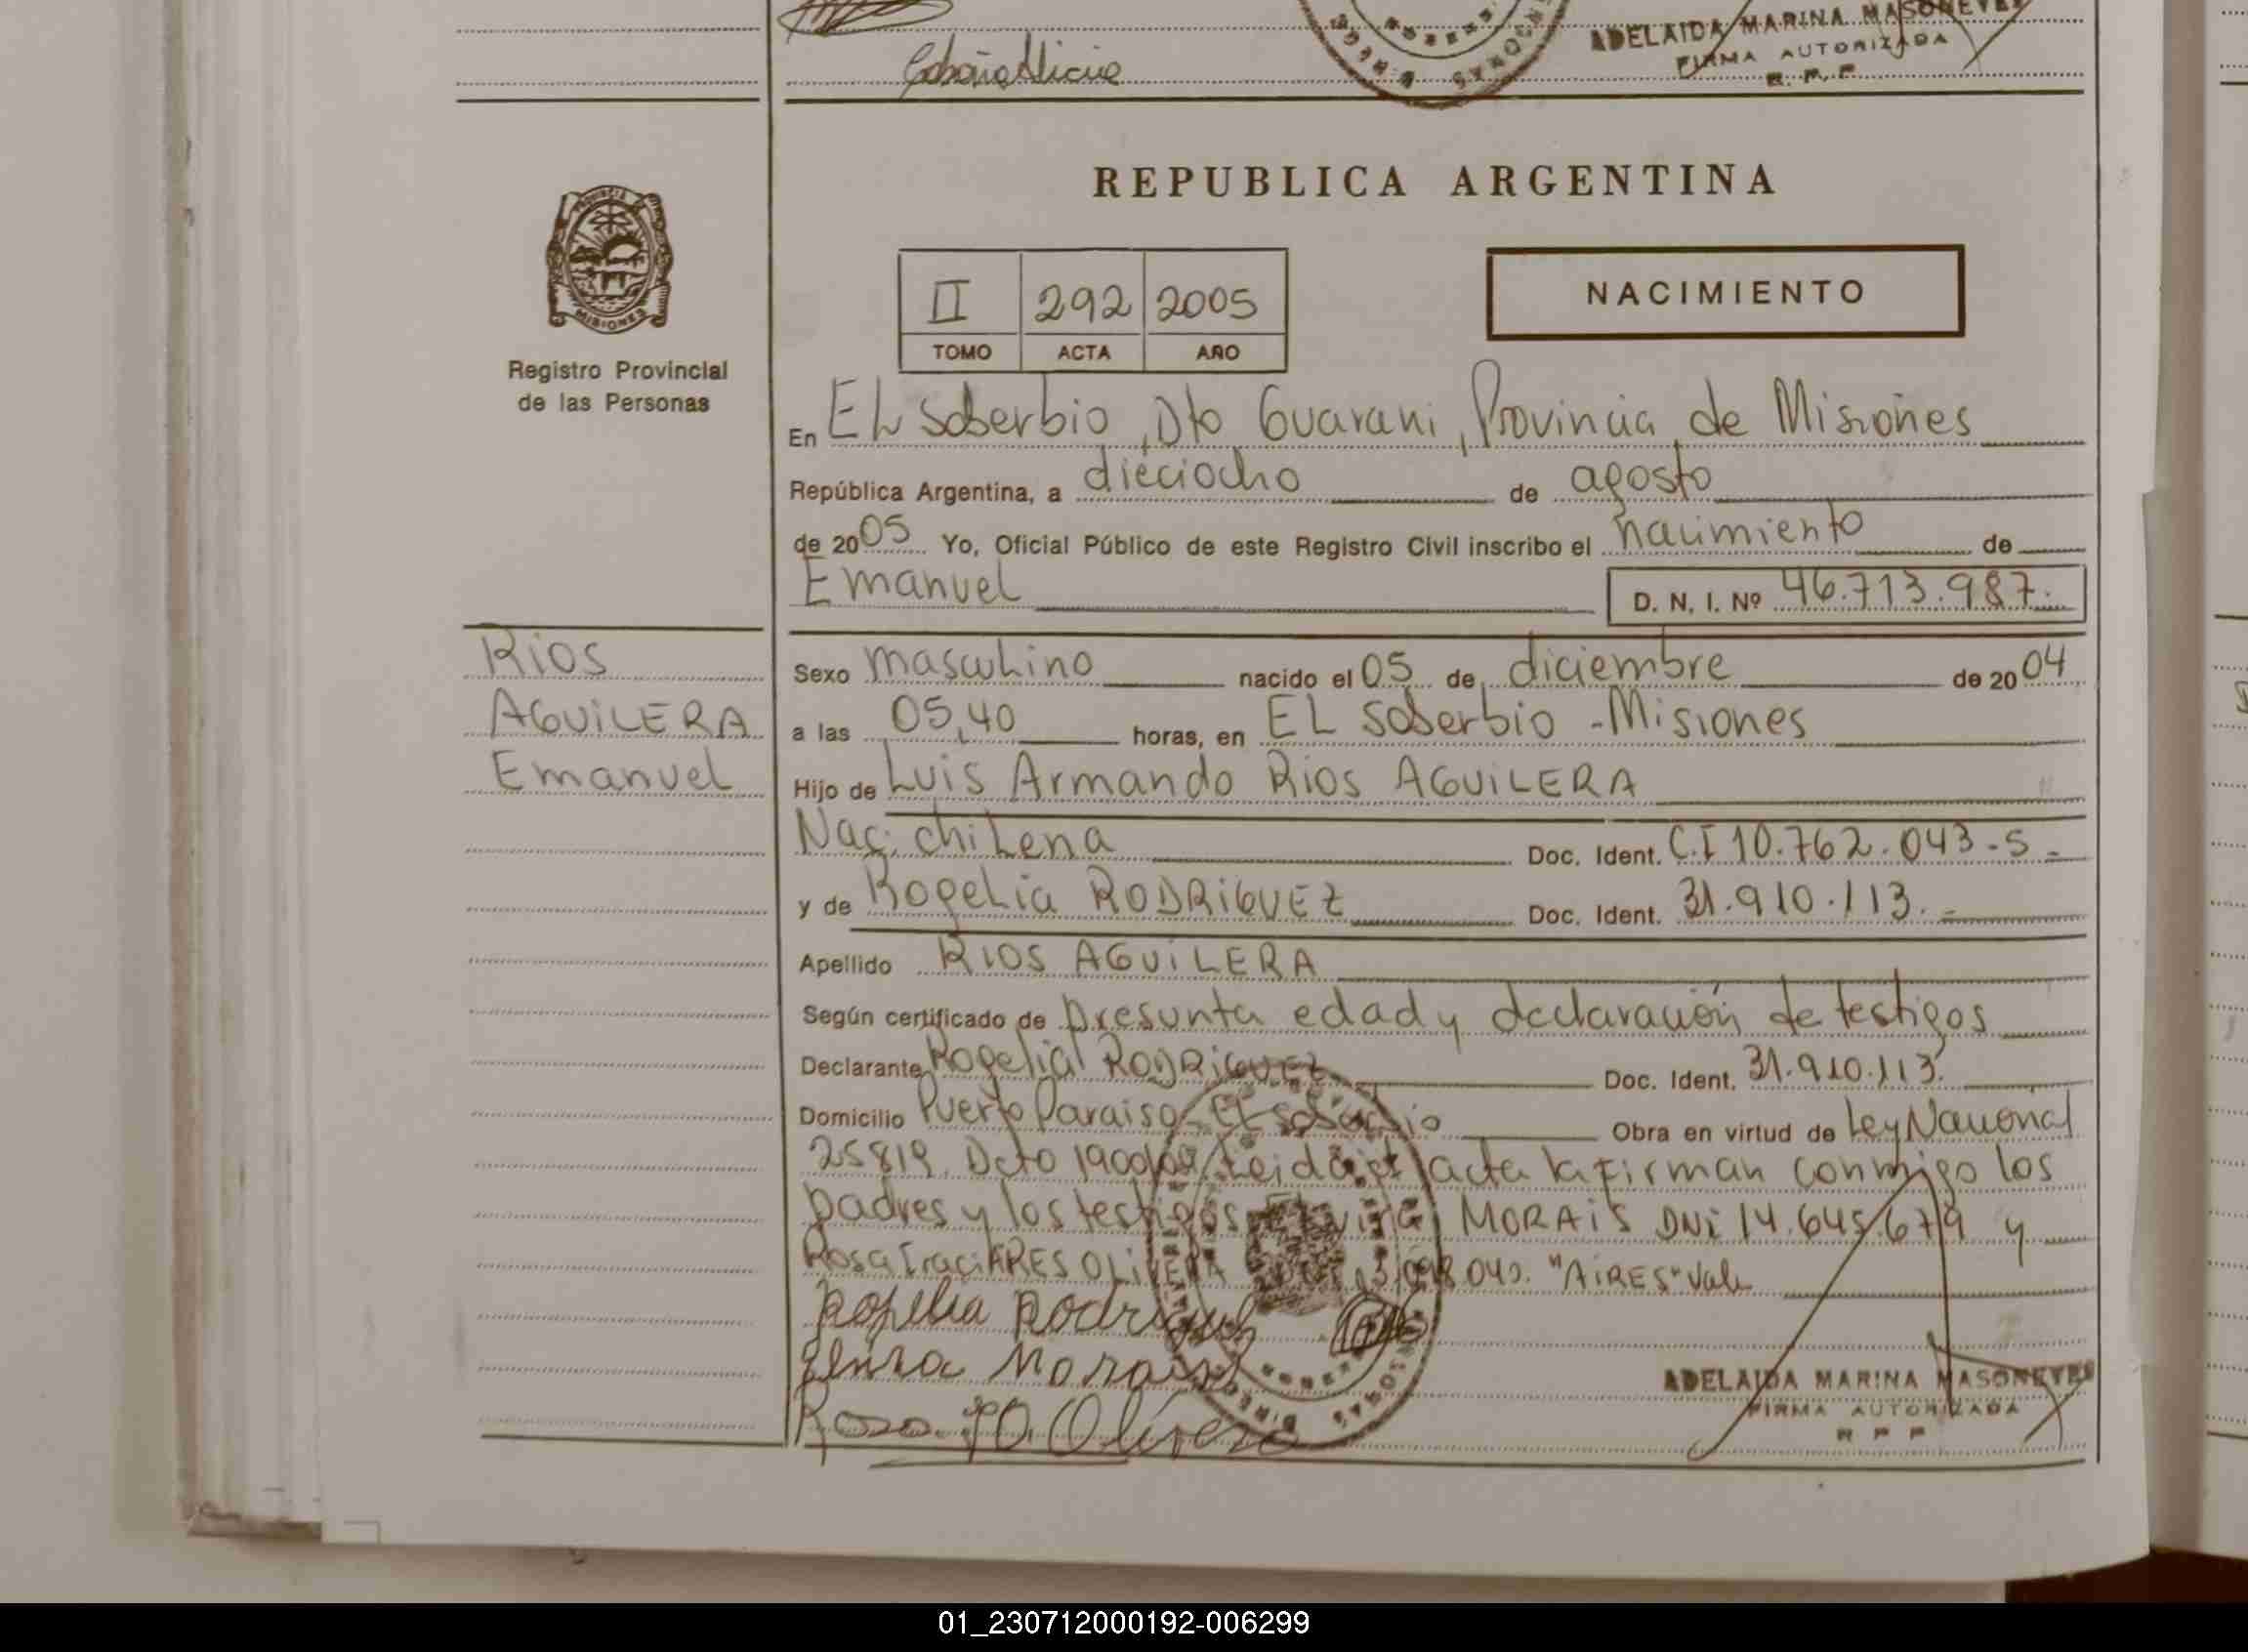 Alicia
ADELAIDA MARINA MASONEYRE
FIRMA AUTORIZADA
R. P. P.
REPUBLICA ARGENTINA
PROVINCIA
MISIONES
Registro Provincial
de las Personas
II 292 2005
TOMO ACTA AÑO
NACIMIENTO
En EL Soberbio, Dto Guarani, Provincia de Misiones
República Argentina, a dieciocho de agosto
de 2005 Yo, Oficial Público de este Registro Civil inscribo el nacimiento de
Emanuel D. N. I. Nº 46.713.987.
Rios
AGUILERA
Emanuel
Sexo masculino nacido el 05 de diciembre de 2004
a las 05,40 horas, en EL Soberbio - Misiones
Hijo de Luis Armando Rios AGUILERA
Nac. chilena Doc. Ident. C.I 10.762.043-5-
y de Rogelia RODRIGUEZ Doc. Ident. 31.910.113.-
Apellido RIOS AGUILERA
Según certificado de presunta edad y declaración de testigos
Declarante Rogelia RODRIGUEZ Doc. Ident. 31.910.113.
Domicilio Puerto Paraiso - El Soberbio Obra en virtud de Ley Nacional
25819, Dcto 1900/04, Leida el acta la firman conmigo los
padres y los testigos MORAIS DNI 14.645.679 y
Rosa Iraci ARES OLIVERA "AIRES" Vale
Rogelia Rodriguez
Elvira Morais
Rosa Olivera
ADELAIDA MARINA MASONEYRE
FIRMA AUTORIZADA
R P P
01_230712000192-006299